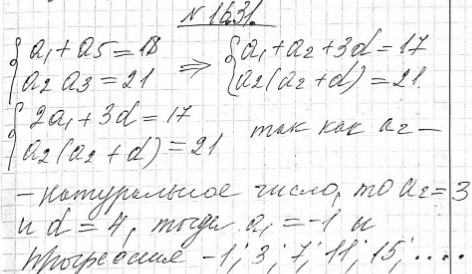 N 1631.
{ a₁ + a5 = 18
a₂ a₃ = 21 ⇒ { a₁ + a₂ + 3d = 17
a₂(a₂ + d) = 21.
{ 2a₁ + 3d = 17
a₂(a₂ + d) = 21 так как a₂ –
– натуральное число, то a₂ = 3
и d = 4, тогда a₁ = -1 и
прогрессия -1; 3; 7; 11; 15; ....